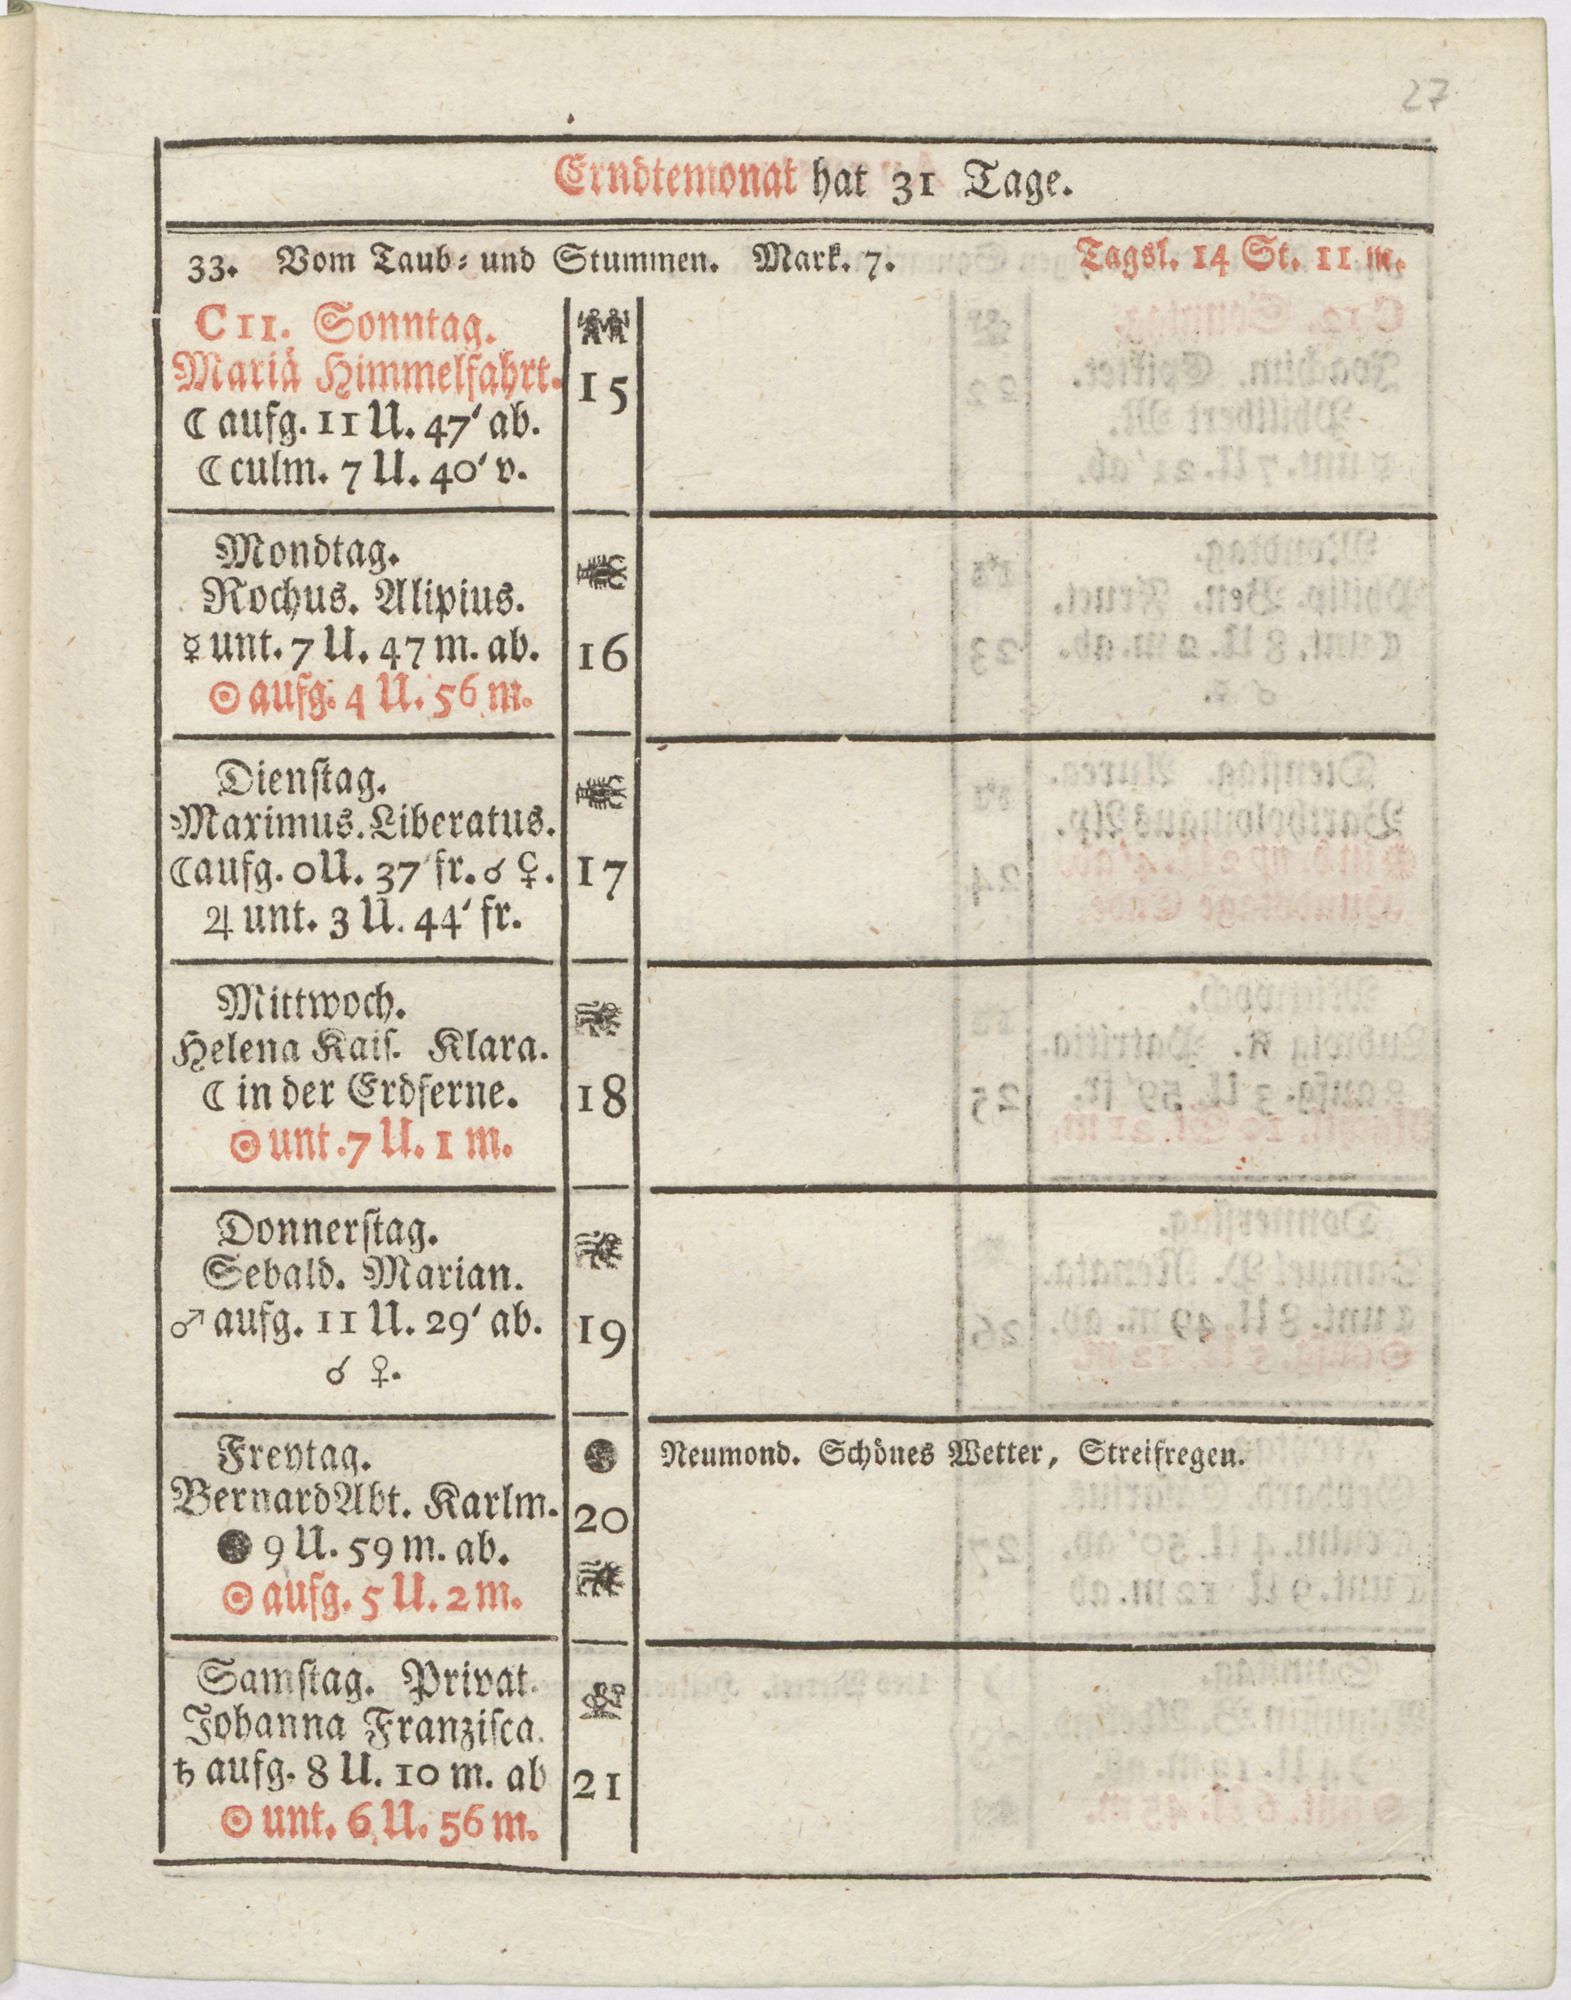 27
Erndtemonat hat 31 Tage.
33. Vom Taub- und Stummen. Mark. 7. Tagsl. 14 St. 11 m.
C 11. Sonntag.
Mariä Himmelfahrt.
☾ aufg. 11 U. 47' ab.
☾ culm. 7 U. 40' v.
15
Mondtag.
Rochus. Alipius.
☿ unt. 7 U. 47 m. ab.
☉ aufg. 4 U. 56 m.
16
Dienstag.
Maximus. Liberatus.
☾ aufg. 0 U. 37 fr. ☌ ♀.
♃ unt. 3 U. 44' fr.
17
Mittwoch.
Helena Kais. Klara.
☾ in der Erdferne.
☉ unt. 7 U. 1 m.
18
Donnerstag.
Sebald. Marian.
♂ aufg. 11 U. 29' ab.
☌ ♀.
19
Freytag.
Bernard Abt. Karlm.
● 9 U. 59 m. ab.
☉ aufg. 5 U. 2 m.
20
Neumond. Schönes Wetter, Streifregen.
Samstag. Privat.
Johanna Franzisca.
♄ aufg. 8 U. 10 m. ab
☉ unt. 6 U. 56 m.
21